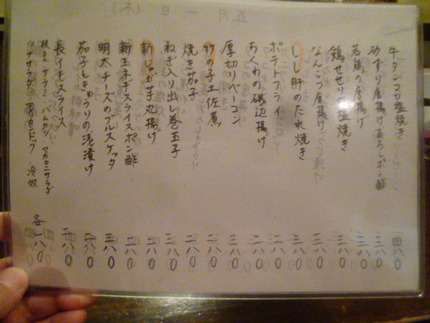 牛タンコロ塩焼き 四八〇
砂ずり唐揚げおろしポン酢 三八〇
若鶏の唐揚げ 三八〇
鶏せせり塩焼き 三八〇
なんこつ唐揚げ 三八〇
しし肝のたれ焼き
ポテトフライ 二八〇
ちくわの磯辺揚げ 二八〇
厚切りベーコン 三八〇
竹の子土佐煮 二八〇
焼き茄子 二八〇
ねぎ入り出し巻玉子 三八〇
新じゃが芋丸揚げ 二八〇
新玉ネギスライスポン酢 二八〇
明太チーズのブルスケッタ 三八〇
茄子ときゅうりの浅漬け 二八〇
長イモスライス 二八〇
枝豆・サラダ・ハムカツ・マカロニサラダ
冷奴 各一八〇